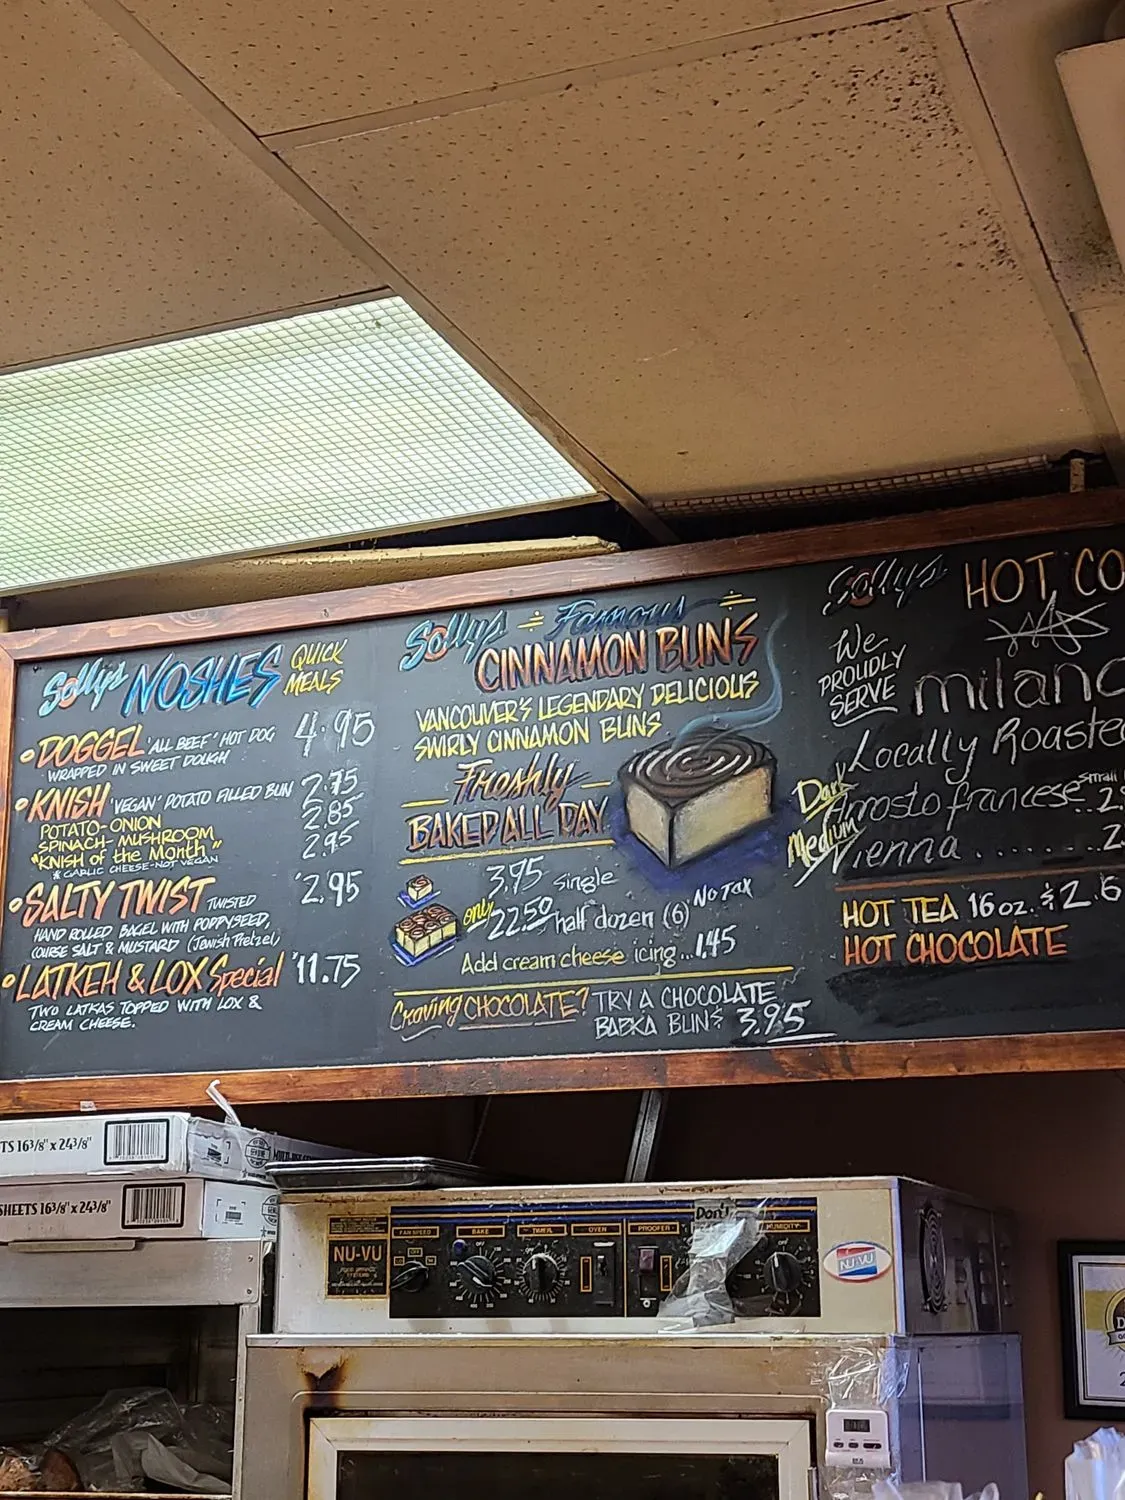 Solly's NOSHES QUICK MEALS
DOGGEL 'ALL BEEF' HOT DOG 4.95
WRAPPED IN SWEET DOUGH
KNISH 'VEGAN' POTATO FILLED BUN 2.75
POTATO-ONION 2.85
SPINACH-MUSHROOM 2.95
"KNISH of the Month"
& GARLIC CHEESE-NOT VEGAN
SALTY TWIST TWISTED 2.95
HAND ROLLED BAGEL WITH POPPYSEED,
COURSE SALT & MUSTARD (Jewish Pretzel)
LATKEH & LOX Special 11.75
TWO LATKAS TOPPED WITH LOX &
CREAM CHEESE.
Solly's Famous
CINNAMON BUNS
VANCOUVER'S LEGENDARY DELICIOUS
SWIRLY CINNAMON BUNS
Freshly
BAKED ALL DAY
3.75 Single
only 22.50 half dozen (6) No Tax
Add cream cheese icing...1.45
Craving CHOCOLATE? TRY A CHOCOLATE
BABKA BUN 3.95
Solly's HOT CO
We
PROUDLY
SERVE
milano
Locally Roaste
small
Dark Arrosto francese ..2
Medium Vienna ....... 2.
HOT TEA 16 oz. 2.6
HOT CHOCOLATE
TS 16 3/8" x 24 3/8"
SHEETS 16 3/8" x 24 3/8"
NU-VU
FOOD SERVICE
SYSTEMS
FAN SPEED
BAKE
TIMER
OVEN
PROOFER
Don't
HUMIDITY
OFF
NU-VU